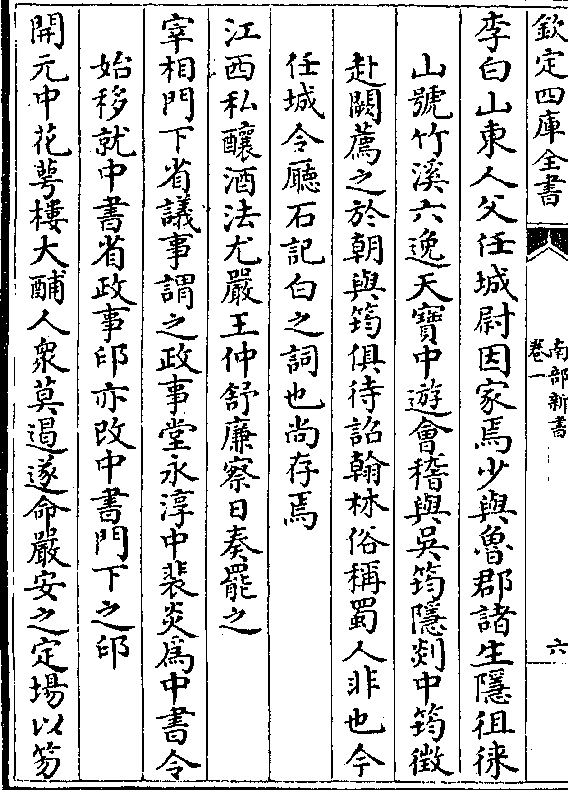 欽定四庫全書
南部新書
卷一
六
李白山東人父任城尉因家焉少與魯郡諸生隱徂徠
山號竹溪六逸天寶中遊會稽與吳筠隱剡中筠徵
赴闕薦之於朝與筠俱待詔翰林俗稱蜀人非也今
任城令廳石記白之詞也尚存焉
江西私釀酒法尤嚴王仲舒廉察日奏罷之
宰相門下省議事謂之政事堂永淳中裴炎為中書令
始移就中書省政事印亦改中書門下之印
開元中花萼樓大酺人衆莫遏遂命嚴安之定場以笏